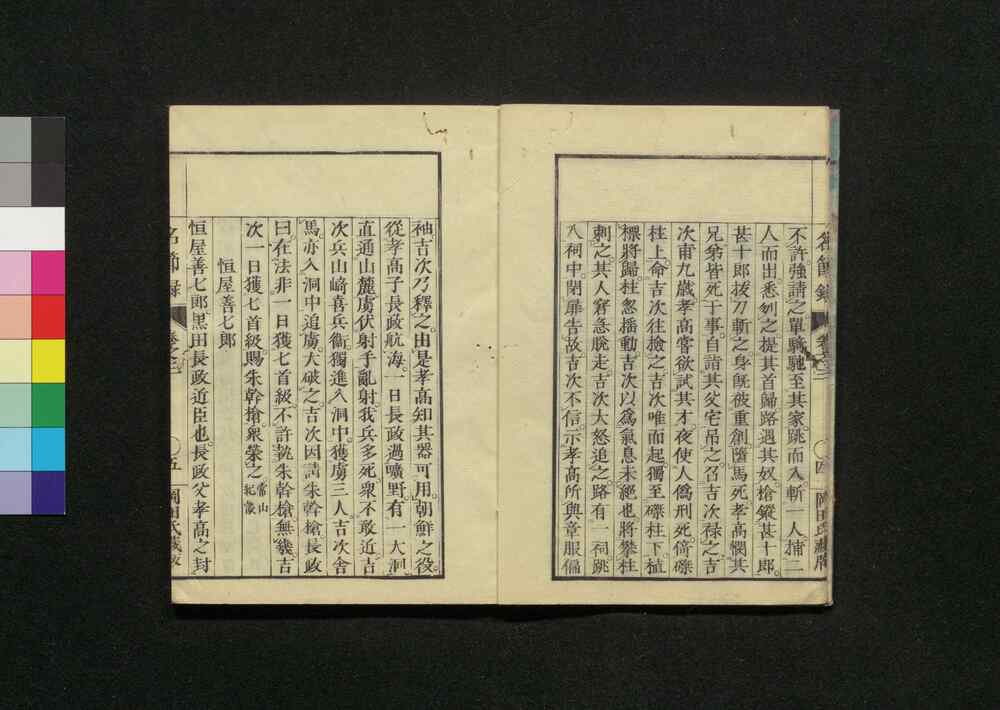 名節録 卷之二 〇四 岡田氏藏版
不許強請之單騎馳至其家跳而入斬一人捕二
人而出悉刎之提其首歸路遇其奴槍鏦甚十郎
甚十郎拔刀斬之身旣被重創墮馬死孝高憫其
兄弟皆死于事自詣其父宅吊之召吉次祿之吉
次甫九歲孝高嘗欲試其才夜使人僞刑死倚磔
柱上命吉次往撿之吉次唯而起獨至磔柱下植
標將歸柱忽搖動吉次以爲氣息未絕也將攀柱
刺之其人窘急脫走吉次大怒追之路有一祠跳
入祠中閉扉告故吉次不信示孝高所與章服徧
袖吉次乃釋之由是孝高知其器可用朝鮮之役
從孝高子長政航海一日長政過曠野有一大洞
直通山麓虜伏射手亂射我兵多死衆不敢近吉
次兵山﨑喜兵衞獨進入洞中獲虜三人吉次舍
馬亦入洞中追虜大破之吉次因請朱幹槍長政
曰在法非一日獲七首級不許執朱幹槍無幾吉
次一日獲七首級賜朱幹槍衆榮之 常山紀談
恒屋善七郞
恒屋善七郞黑田長政近臣也長政父孝高之封
名節録 卷之二 〇五 岡田氏藏版